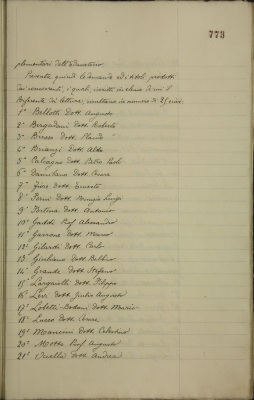 773
plementari dell'educatorio.
Presenta quindi le domande ed i titoli prodotti
dai concorrenti, i quali, inscritti in elenco di cui il
Referente dà lettura, risultano in numero di 21 cioè:
1° Bellotti Dott. Augusto
2° Bergadani Dott. Roberto
3° Dott.
4° Briangi Dott. Aldo
5° Calcagno Dott. Pietro Paolo
6° Damilano Dott. Cesare
7° Fiore Dott. Ernesto
8° Forni Dott. Luigi
9° Fortina Dott. Antonio
10° Gaddi Prof. Alessandro
11° Garrone Dott. Marco
12° Gilardi Dott. Carlo
13° Giuliano Dott. Balbino
14° Grande Dott. Stefano
15° Dott. Filippo
16° Levi Dott. Giulio Augusto
17° Lobetti-Bodoni Dott. Mario
18° Lucco Dott. Cesare
19° Mannini Dott. Celestino
20° Motta Prof. Augusto
21° Dott. Andrea